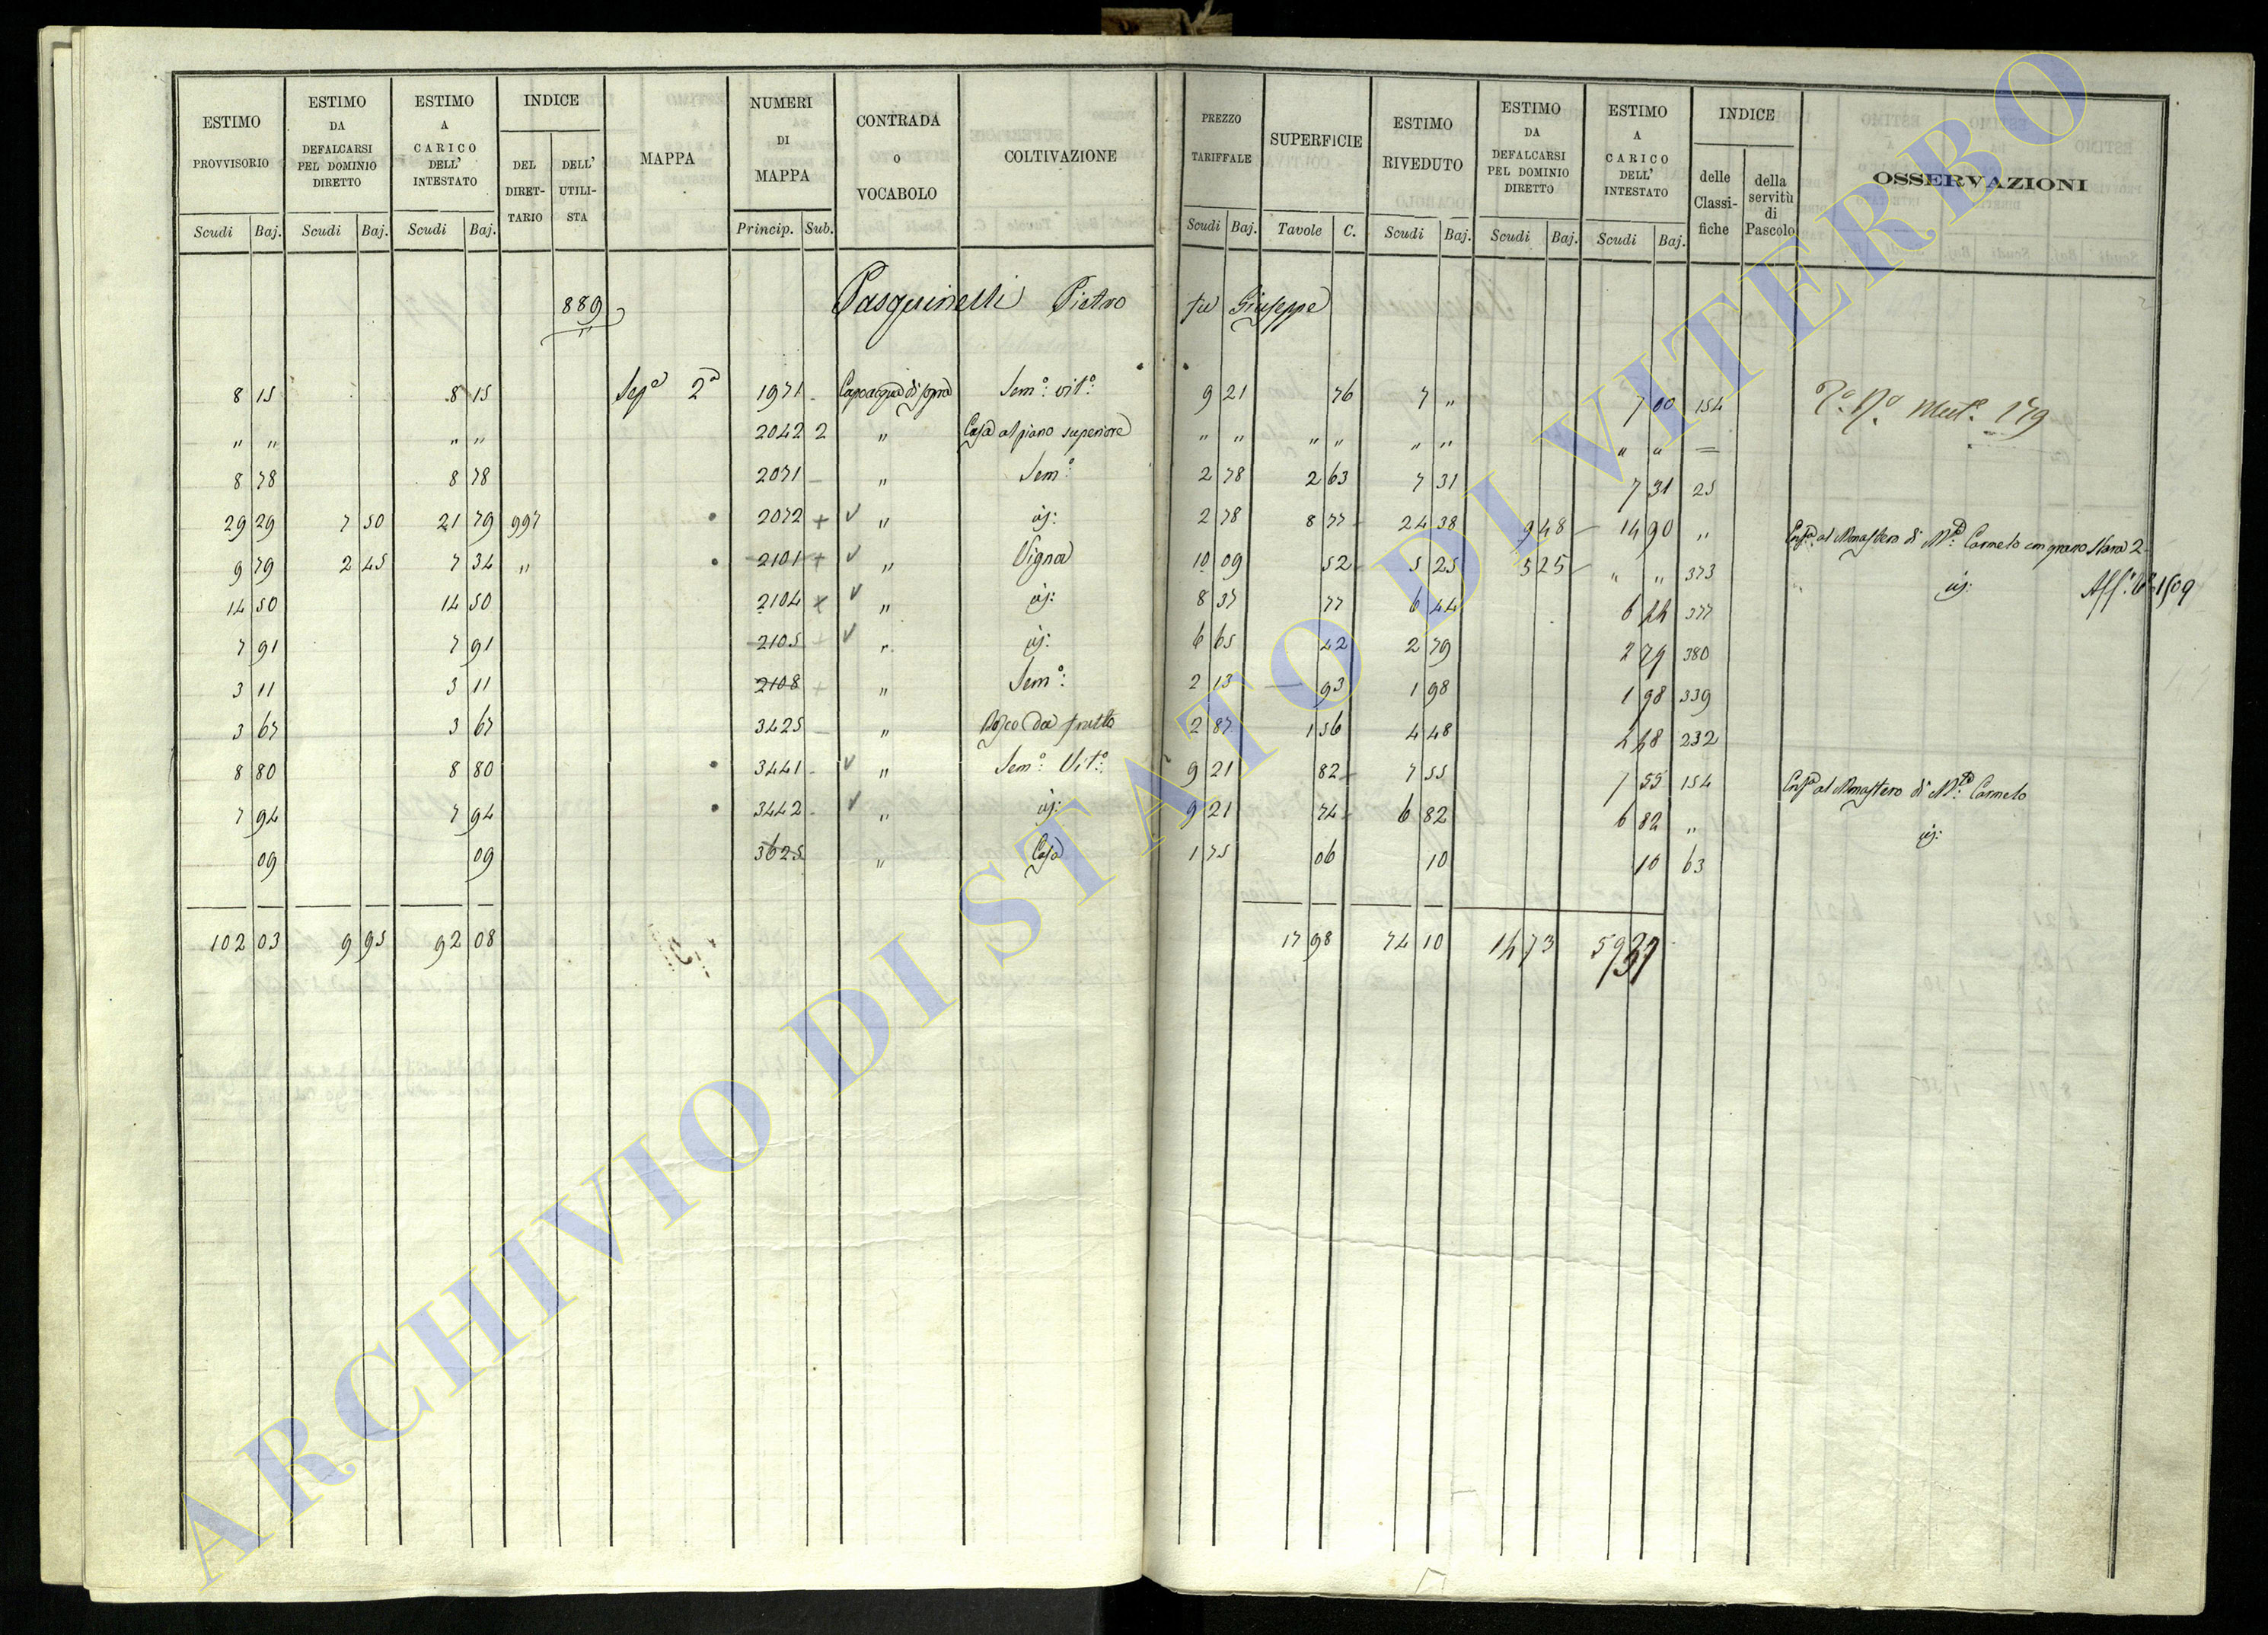 ESTIMO PROVVISORIO | ESTIMO DA DEFALCARSI PEL DOMINIO DIRETTO | ESTIMO A CARICO DELL' INTESTATO | INDICE DEL DIRET- TARIO | DELL' UTILI- STA | MAPPA | NUMERI DI MAPPA | CONTRADA O VOCABOLO | COLTIVAZIONE | PREZZO TARIFFALE | SUPERFICIE | ESTIMO RIVEDUTO | ESTIMO DA DEFALCARSI PEL DOMINIO DIRETTO | ESTIMO A CARICO DELL' INTESTATO | INDICE delle Classi- fiche | della servitù di Pascolo | OSSERVAZIONI
Scudi Baj. | Scudi Baj. | Scudi Baj. | Princip. Sub. | Scudi Baj. | Tavole C. | Scudi Baj. | Scudi Baj. | Scudi Baj.
889 Pasquinelli Pietro fu Giuseppe
8 15 | 8 15 | Sez.a 2a | 1971 | Capoacqua di sopra | Sem.o vit.o | 9 21 | 76 | 7 „ | 7 00 | 154 | Mut.e 179
„ „ | „ „ | 2042 2 | „ | Casa al piano superiore | „ „ | „ „ | „ „ | „ „ | =
8 78 | 8 78 | 2071 | „ | Sem.o | 2 78 | 2 63 | 7 31 | 7 31 | 25
29 29 | 7 50 | 21 79 | 997 | 2072 + | „ | id: | 2 78 | 8 77 | 24 38 | 9 48 | 14 90 | „ | Enf.a al Monastero di M.te Carmelo con grano 2
9 79 | 2 45 | 7 34 | „ | 2101 + | „ | Vigna | 10 09 | 52 | 5 25 | 5 25 | „ „ | 373 | id: 1509
14 50 | 14 50 | 2104 x | „ | id: | 8 37 | 77 | 6 44 | 6 44 | 377
7 91 | 7 91 | 2105 + | „ | id: | 6 65 | 42 | 2 79 | 2 79 | 380
3 11 | 3 11 | 2108 + | „ | Sem.o: | 2 13 | 93 | 1 98 | 1 98 | 339
3 67 | 3 67 | 3425 | „ | Bosco da frutto | 2 87 | 1 56 | 4 48 | 4 48 | 232
8 80 | 8 80 | 3441 | „ | Sem.o: Vit.o: | 9 21 | 82 | 7 55 | 7 55 | 154 | Enf.a al Monastero di M.te Carmelo
7 94 | 7 94 | 3442 | „ | id: | 9 21 | 74 | 6 82 | 6 82 | „ | id:
09 | 09 | 3625 | „ | Casa | 1 75 | 06 | 10 | 10 | 63
102 03 | 9 95 | 92 08 | 17 98 | 74 10 | 14 73 | 59 37
ARCHIVIO DI STATO DI VITERBO